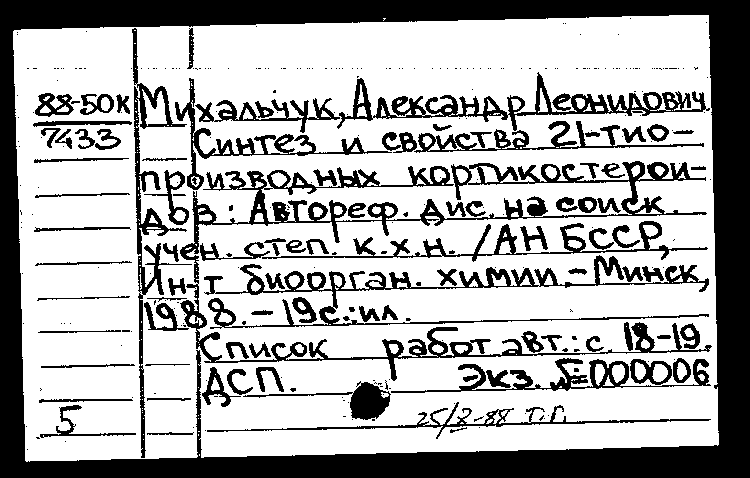 88-50К Михальчук, Александр Леонидович
7433 Синтез и свойства 21-тио-
производных кортикостерои-
дов: Автореф. дис. на соиск.
учен. степ. к.х.н. /АН БССР,
Ин-т биоорган. химии.-Минск,
1988.-19с.:ил.
Список работ авт.: с. 18-19.
ДСП. Экз. №000006
5 25/X-88 Т.П.